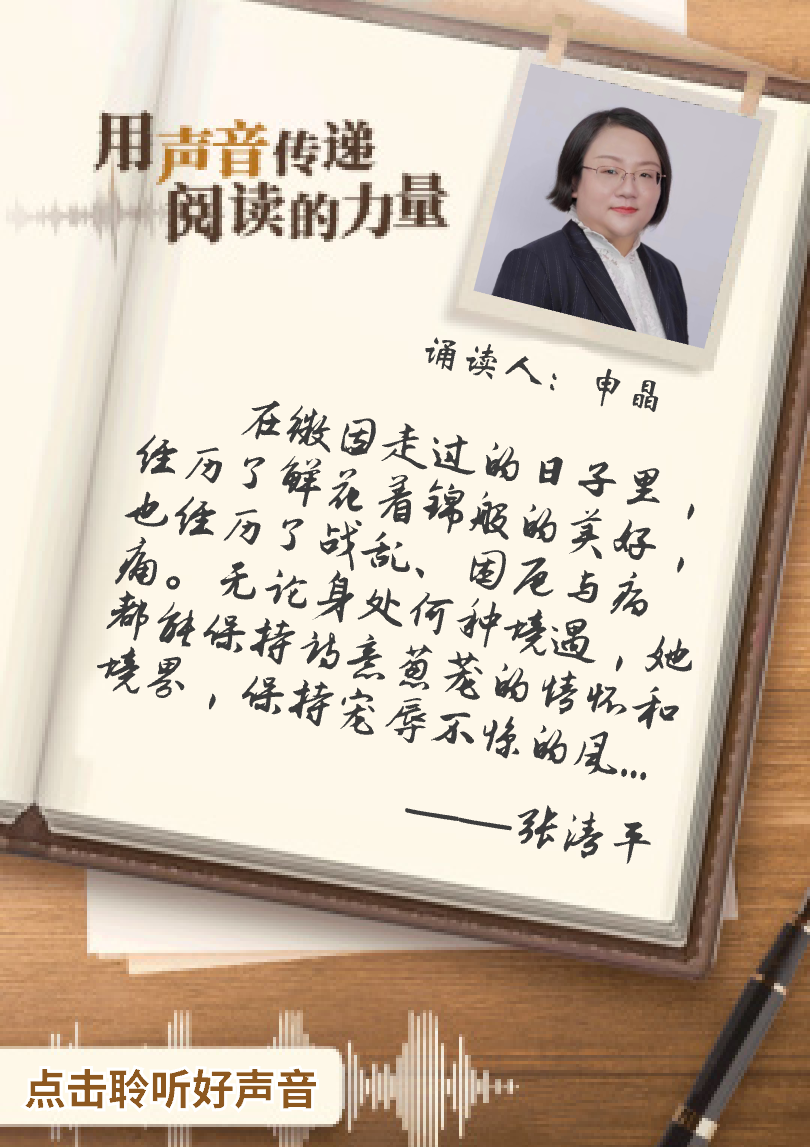 用声音传递
阅读的力量
诵读人：申晶
在徽因走过的日子里，
经历了鲜花着锦般的美好，
也经历了战乱、困厄与病
痛。无论身处何种境遇，她
都能保持诗意葱茏的情怀和
境界，保持宠辱不惊的风...
——张清平
点击聆听好声音